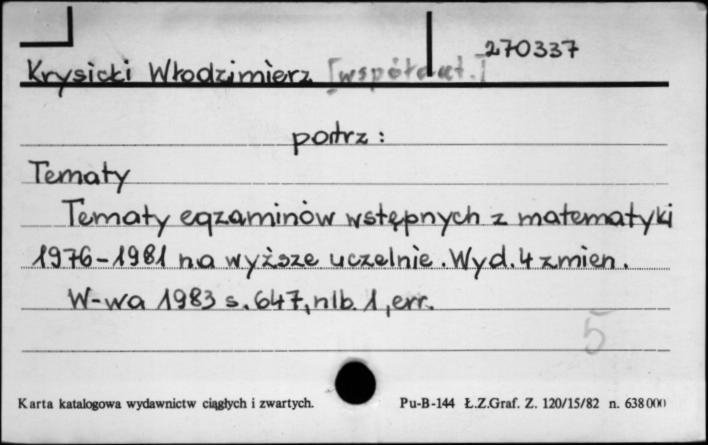 270337
Krysicki Włodzimierz [współaut.]
patrz:
Tematy
Tematy egzaminów wstępnych z matematyki
1976-1981 na wyższe uczelnie. Wyd. 4 zmien.
W-wa 1983 s. 647, nlb. 1, err.
5
Karta katalogowa wydawnictw ciągłych i zwartych. Pu-B-144 Ł.Z.Graf. Z. 120/15/82 n. 638 000